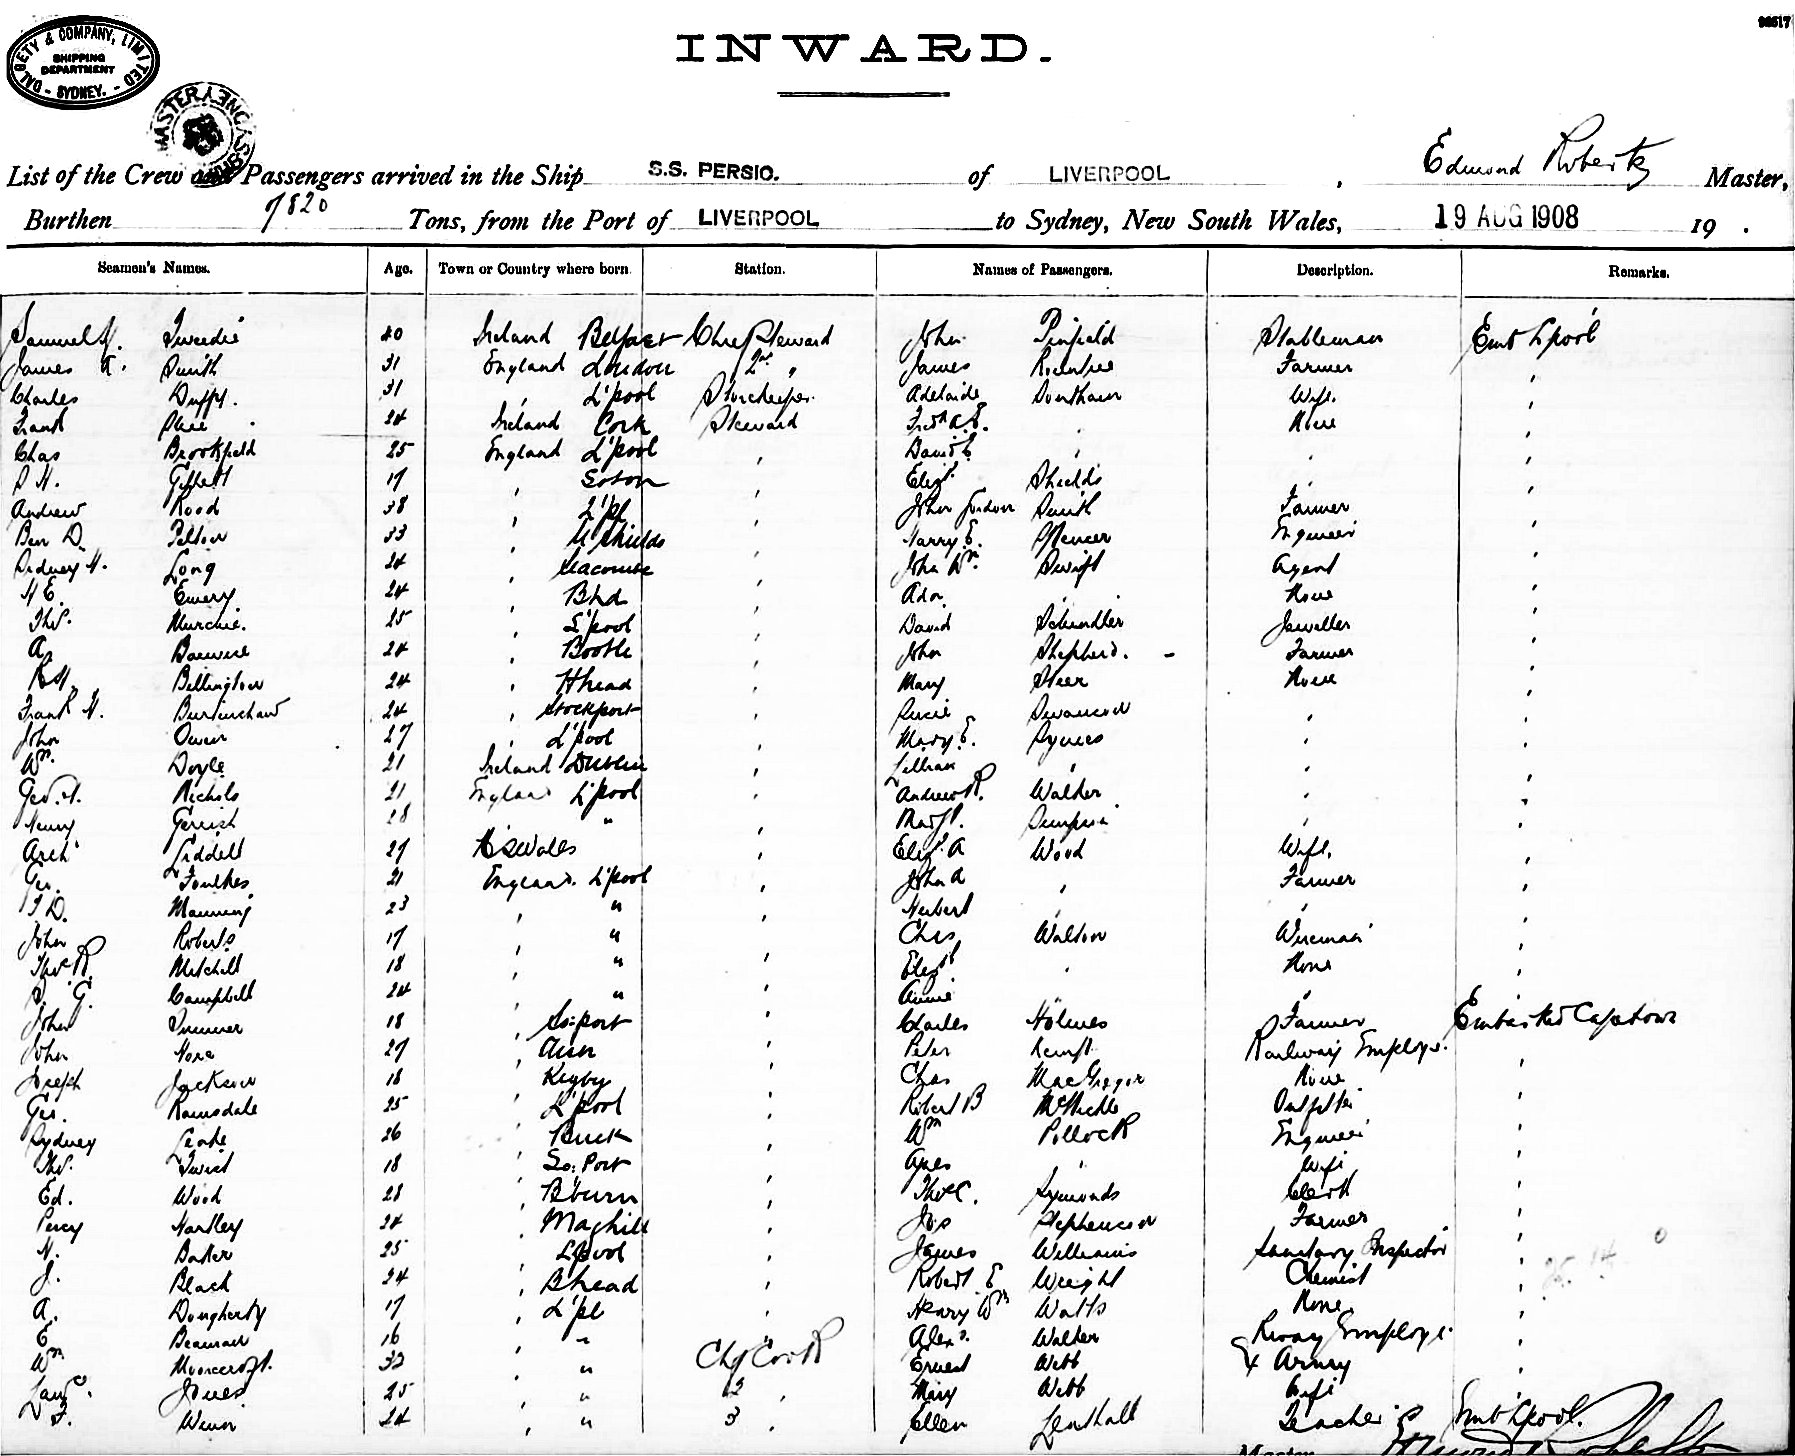 96517
DALGETY & COMPANY, LIMITED
SHIPPING DEPARTMENT
- SYDNEY. -
INWARD.
List of the Crew and Passengers arrived in the Ship S.S. PERSIC. of LIVERPOOL, Edmund Roberts Master,
Burthen 7820 Tons, from the Port of LIVERPOOL to Sydney, New South Wales, 19 AUG 1908 19 .
Seamen's Names. Age. Town or Country where born. Station. Names of Passengers. Description. Remarks.
Samuel Tweedie 40 Ireland Belfast Chief Steward John Pinfield Stableman Emb L'pool
James A. Smith 31 England London 2nd " James Farmer "
Charles Duffy. 31 " L'pool Storekeeper Adelaide Southam Wife. "
Frank 24 Ireland Cork Steward " None "
Chas Brookfield 25 England L'pool " David " " "
Gippell 17 " Soton " Eliz. Shields " "
Andrew Rood 38 " L'pl " John Gordon Smith Farmer "
Ben D. Pelton 33 " N Shields " Harry E. Spencer Engineer "
Sidney H. Long 24 " Seacombe " John Wm. Swift Agent "
H E. Emery 24 " Bhd " Ada " None "
Thos. Murchie. 25 " L'pool " David Schindler Jeweller "
A. 24 " Bootle " John Shepherd. - Farmer "
Billington 24 " Bhead " Mary Steer None "
Frank H. Burtinshaw 24 " Stockport " Swanson " "
John Owen 27 " L'pool " Mary E. Symes " "
Wm. Doyle 21 Ireland Dublin " Lillian " " "
Geo. A. Nichols 21 England L'pool " Andrew R. Walker " "
Henry Gerrish 28 " " Margt. Simpson " "
Arch Liddell 27 N S Wales " Eliz. A Wood Wife. "
Geo. Foulkes 21 England. L'pool " John A " Farmer "
Manning 23 " " " Herbert " " "
John Roberts 17 " " " Chas Walton Wireman "
Thos R. Mitchell 18 " " " Eliz. " None "
G. Campbell 24 " " " Annie " "
John 18 " So:port " Charles Holmes Farmer Embarked Capetown
John Hone 27 " " Peter Kempt Railway Employe. "
Joseph Jackson 18 " " Chas MacGregor None "
Geo. Ramsdale 25 " L'pool " Robert B Outfitter "
Sydney Leake 26 " Buck " Wm Pollock Engineer "
Thos. Twist 18 " So: Port " Agnes " Wife "
Ed. Wood 28 " B'burn " Thos C. Symonds Clerk "
Percy Hartley 24 " Maghull " Jos Stephenson Farmer "
H. Baker 25 " L'pool " James Williams Sanitary Inspector "
J. Black 24 " Bhead " Robert E Wright Chemist "
A. Dougherty 17 " L'pl " Henry Wm Watts None. "
E Beaman 16 " " Alexr. Walker Rway Employe. "
Wm Mooncroft. 32 " " Chf Cook Ernest Webb Army "
Lawce. Jones 25 " " 2 " Mary Webb Wife "
F. Winn 24 " " 3 " Ellen Lenthall Teacher Emb L'pool.
Master